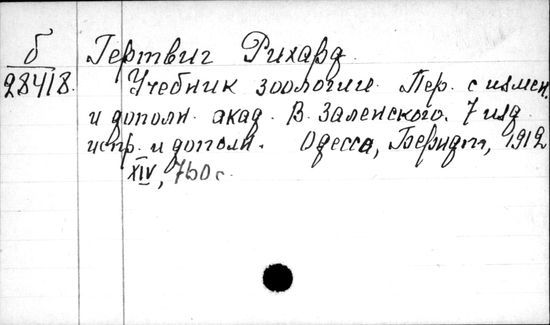 б
28418.
Гертвиг Рихард.
Учебник зоологии. Пер. с измен.
и дополн. акад. В. Заленского. 7 изд.
испр. и дополн. Одесса, 1912
XIV, 760 с.